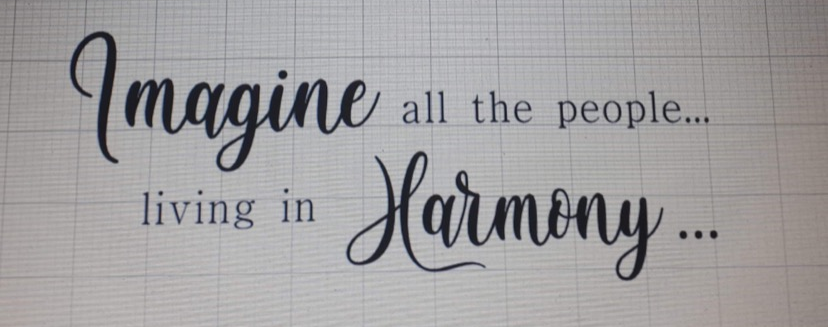 Imagine all the people...
living in Harmony...